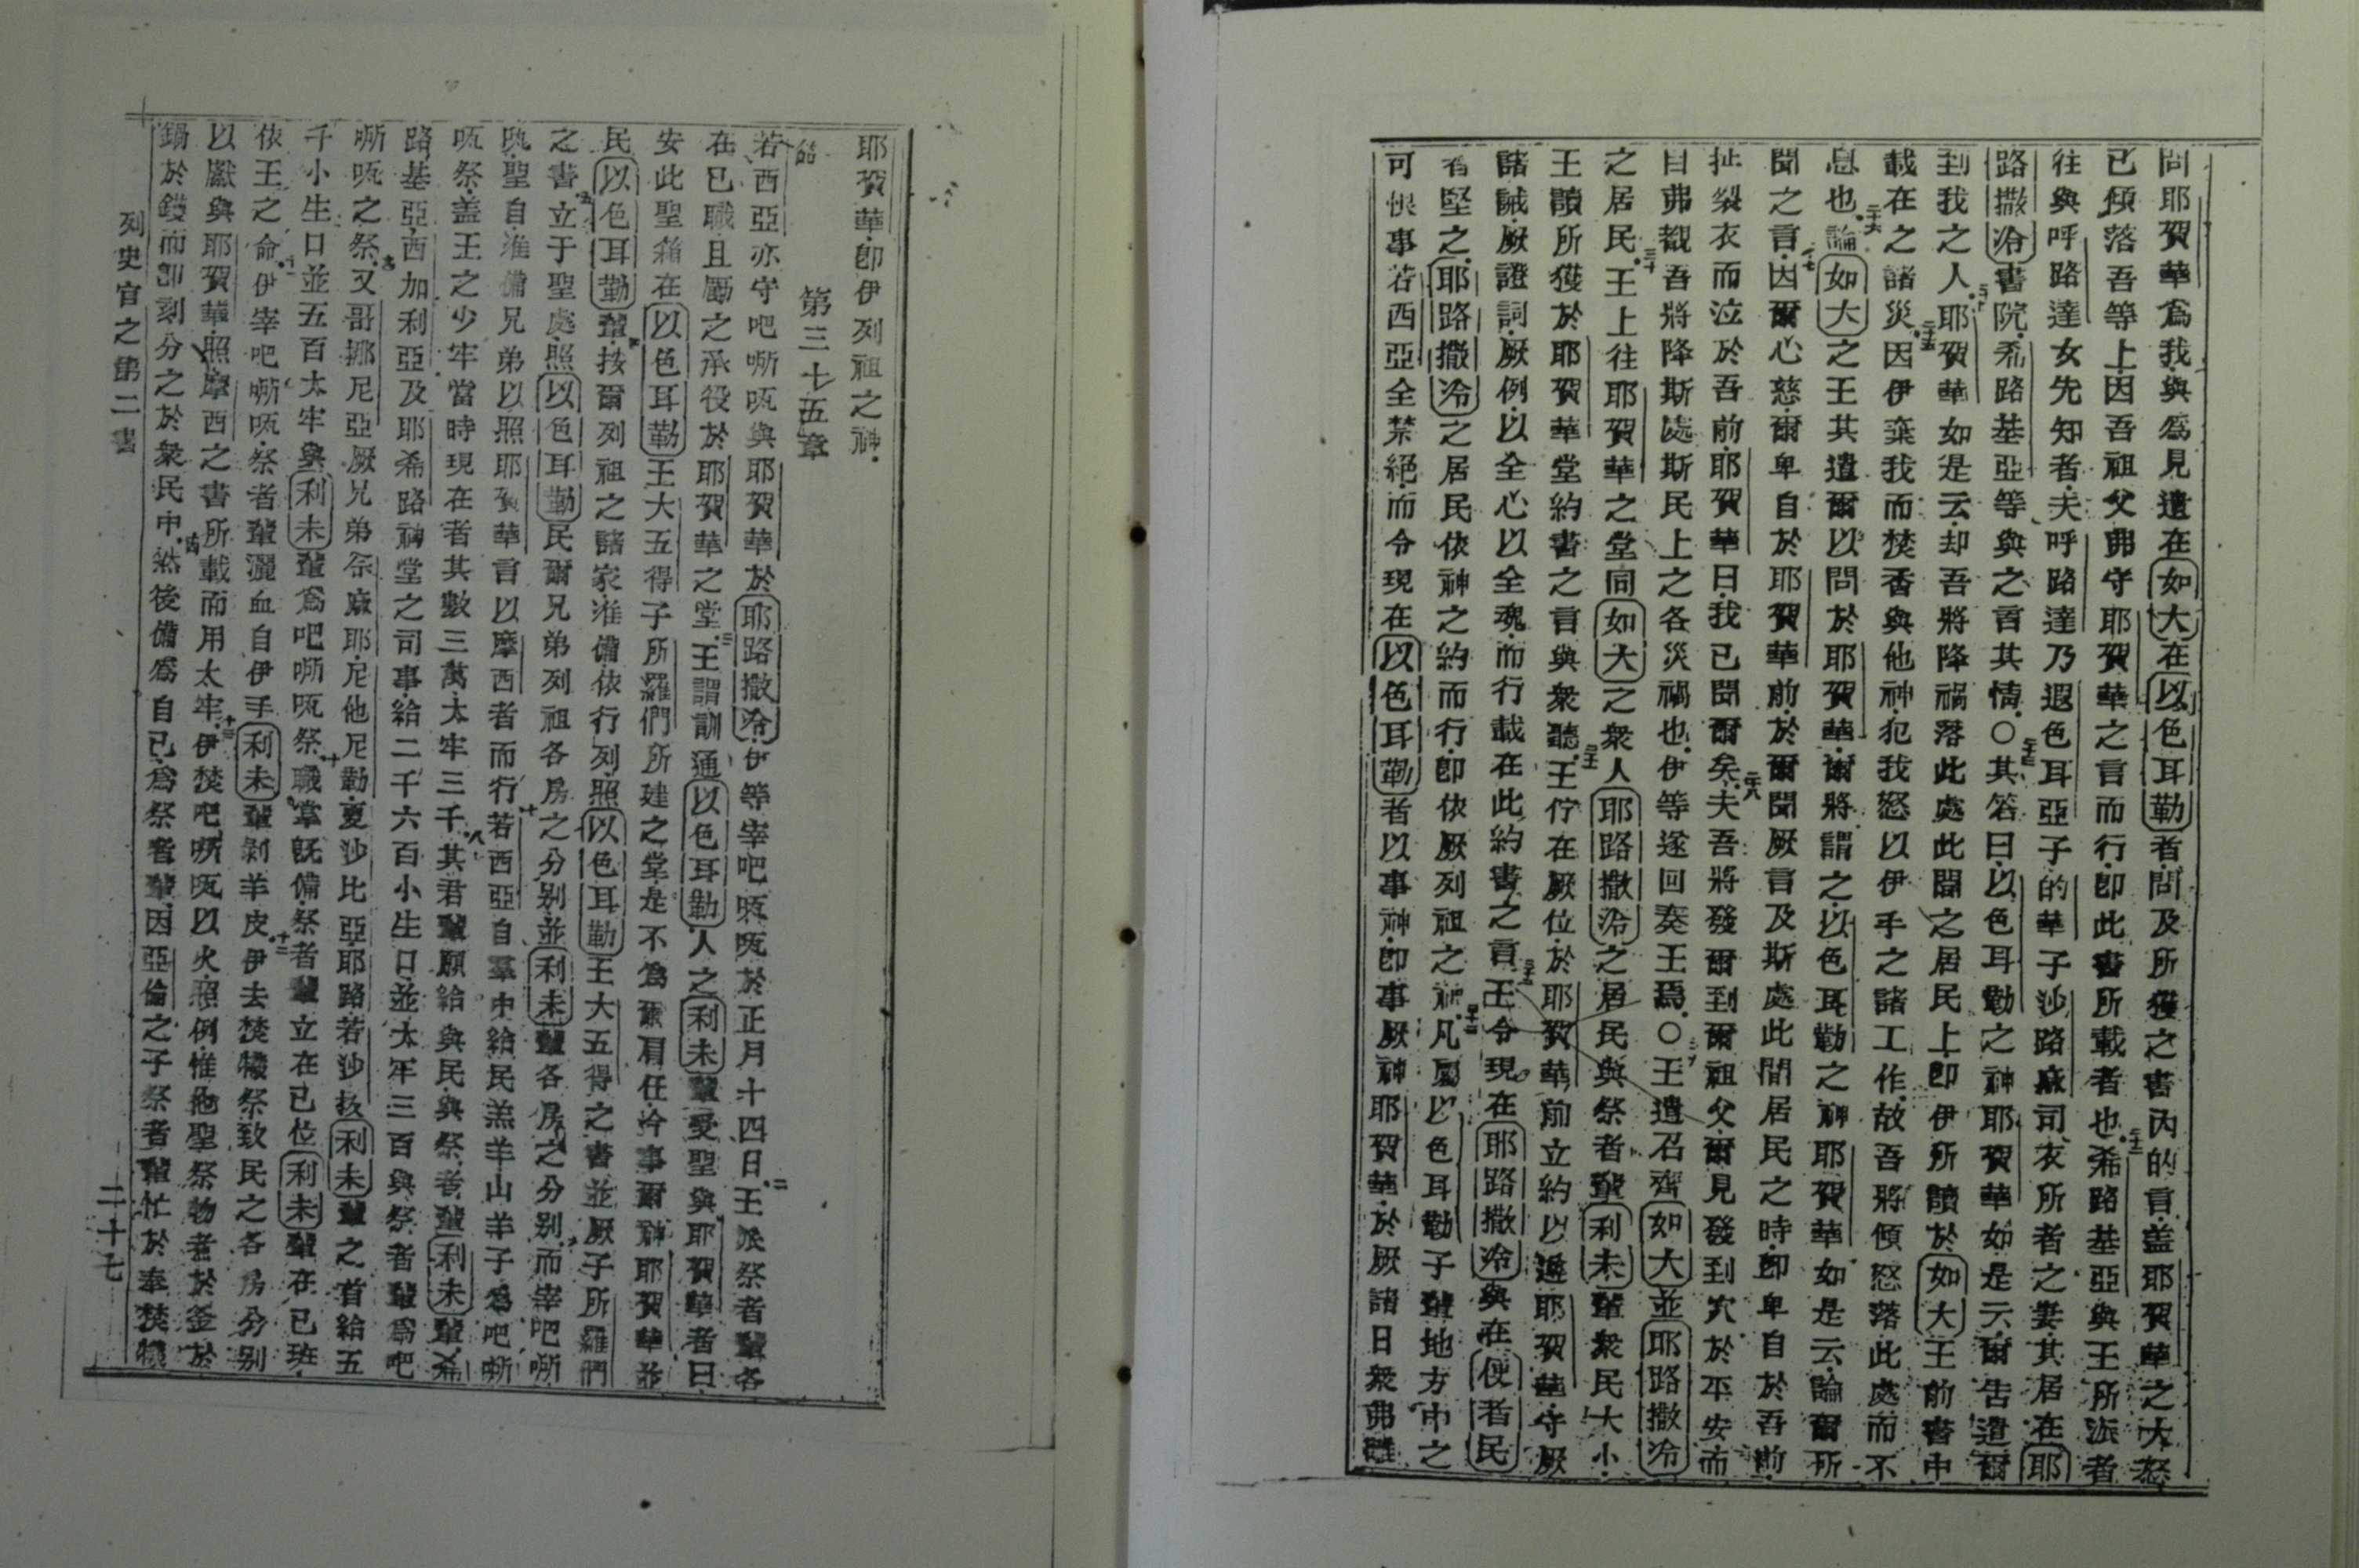 問耶賀華爲我與爲見遺在如大在以色耳勒者問及所獲之書內的言盖耶賀華之大怒
已傾落吾等上因吾祖父弗守耶賀華之言而行卽此書所載者也希路基亞與王所派者
往與呼路達女先知者夫呼路達乃遐色耳亞子的華子沙路麻司衣所者之妻其居在耶
路撒冷書院希路基亞等與之言其情○其答曰以色耳勒之神耶賀華如是云爾告遣爾
到我之人耶賀華如是云却吾將降禍落此處此間之居民上卽伊所讀於如大王前書中
載在之諸災因伊棄我而焚香與他神犯我怒以伊手之諸工作故吾將傾怒落此處而不
息也論如大之王其遣爾以問於耶賀華爾將謂之以色耳勒之神耶賀華如是云論爾所
聞之言因爾心慈爾卑自於耶賀華前於爾聞厥言及斯處此間居民之時卽卑自於吾前
扯裂衣而泣於吾前耶賀華曰我已聞爾矣夫吾將發爾到爾祖父爾見發到穴於平安而
目弗觀吾將降斯處斯民上之各災禍也伊等遂回奏王焉○王遣召齊如大並耶路撒冷
之居民王上往耶賀華之堂同如大之衆人耶路撒冷之居民與祭者輩利未輩衆民大小
王讀所獲於耶賀華堂約書之言與衆聽王佇在厥位於耶賀華前立約以遜耶賀華守厥
諸誡厥證詞厥例以全心以全魂而行載在此約書之言王令現在耶路撒冷與在便者民
者堅之耶路撒冷之居民依神之約而行卽依厥列祖之神凡屬以色耳勒子輩地方中之
可恨事若西亞全禁絕而令現在以色耳勒者以事神卽事厥神耶賀華於厥諸日衆弗離
耶賀華卽伊列祖之神
第三十五章
若西亞亦守吧嘶㖿與耶賀華於耶路撒冷伊等宰吧嘶㖿於正月十四日王派祭者輩各
在已職且勵之承役於耶賀華之堂王謂訓通以色耳勒人之利未輩受聖與耶賀華者曰
安此聖箱在以色耳勒王大五得子所羅們所建之堂是不爲爾肩任今事爾神耶賀華並
民以色耳勒輩按爾列祖之諸家准備依行列照以色耳勒王大五得之書並厥子所羅們
之書立于聖處照以色耳勒民爾兄弟列祖各房之分別並利未輩各房之分別而宰吧嘶
㖿聖自准備兄弟以照耶賀華言以摩西者而行若西亞自羣中給民羔羊山羊子爲吧嘶
㖿祭盖王之少牢當時現在者其數三萬太牢三千其君輩願給與民與祭者輩利未輩希
路基亞西加利亞及耶希路神堂之司事給二千六百小生口並太牢三百與祭者輩爲吧
嘶㖿之祭又哥挪尼亞厥兄弟佘麻耶尼他尼勒夏沙比亞耶路若沙扳利未輩之首給五
千小生口並五百太牢與利未輩爲吧嘶㖿祭職掌既備祭者輩立在已位利未輩在已班
依王之命伊宰吧嘶㖿祭者輩灑血自伊手利未輩剝羊皮伊去焚犧祭致民之各房分別
以獻與耶賀華照摩西之書所載而用太牢伊焚吧嘶㖿以火照例惟他聖祭物者於釜於
鍋於鑊而卽刻分之於衆民中然後備爲自已爲祭者輩因亞倫之子祭者輩忙於奉焚犧
列史官之第二書
二十七